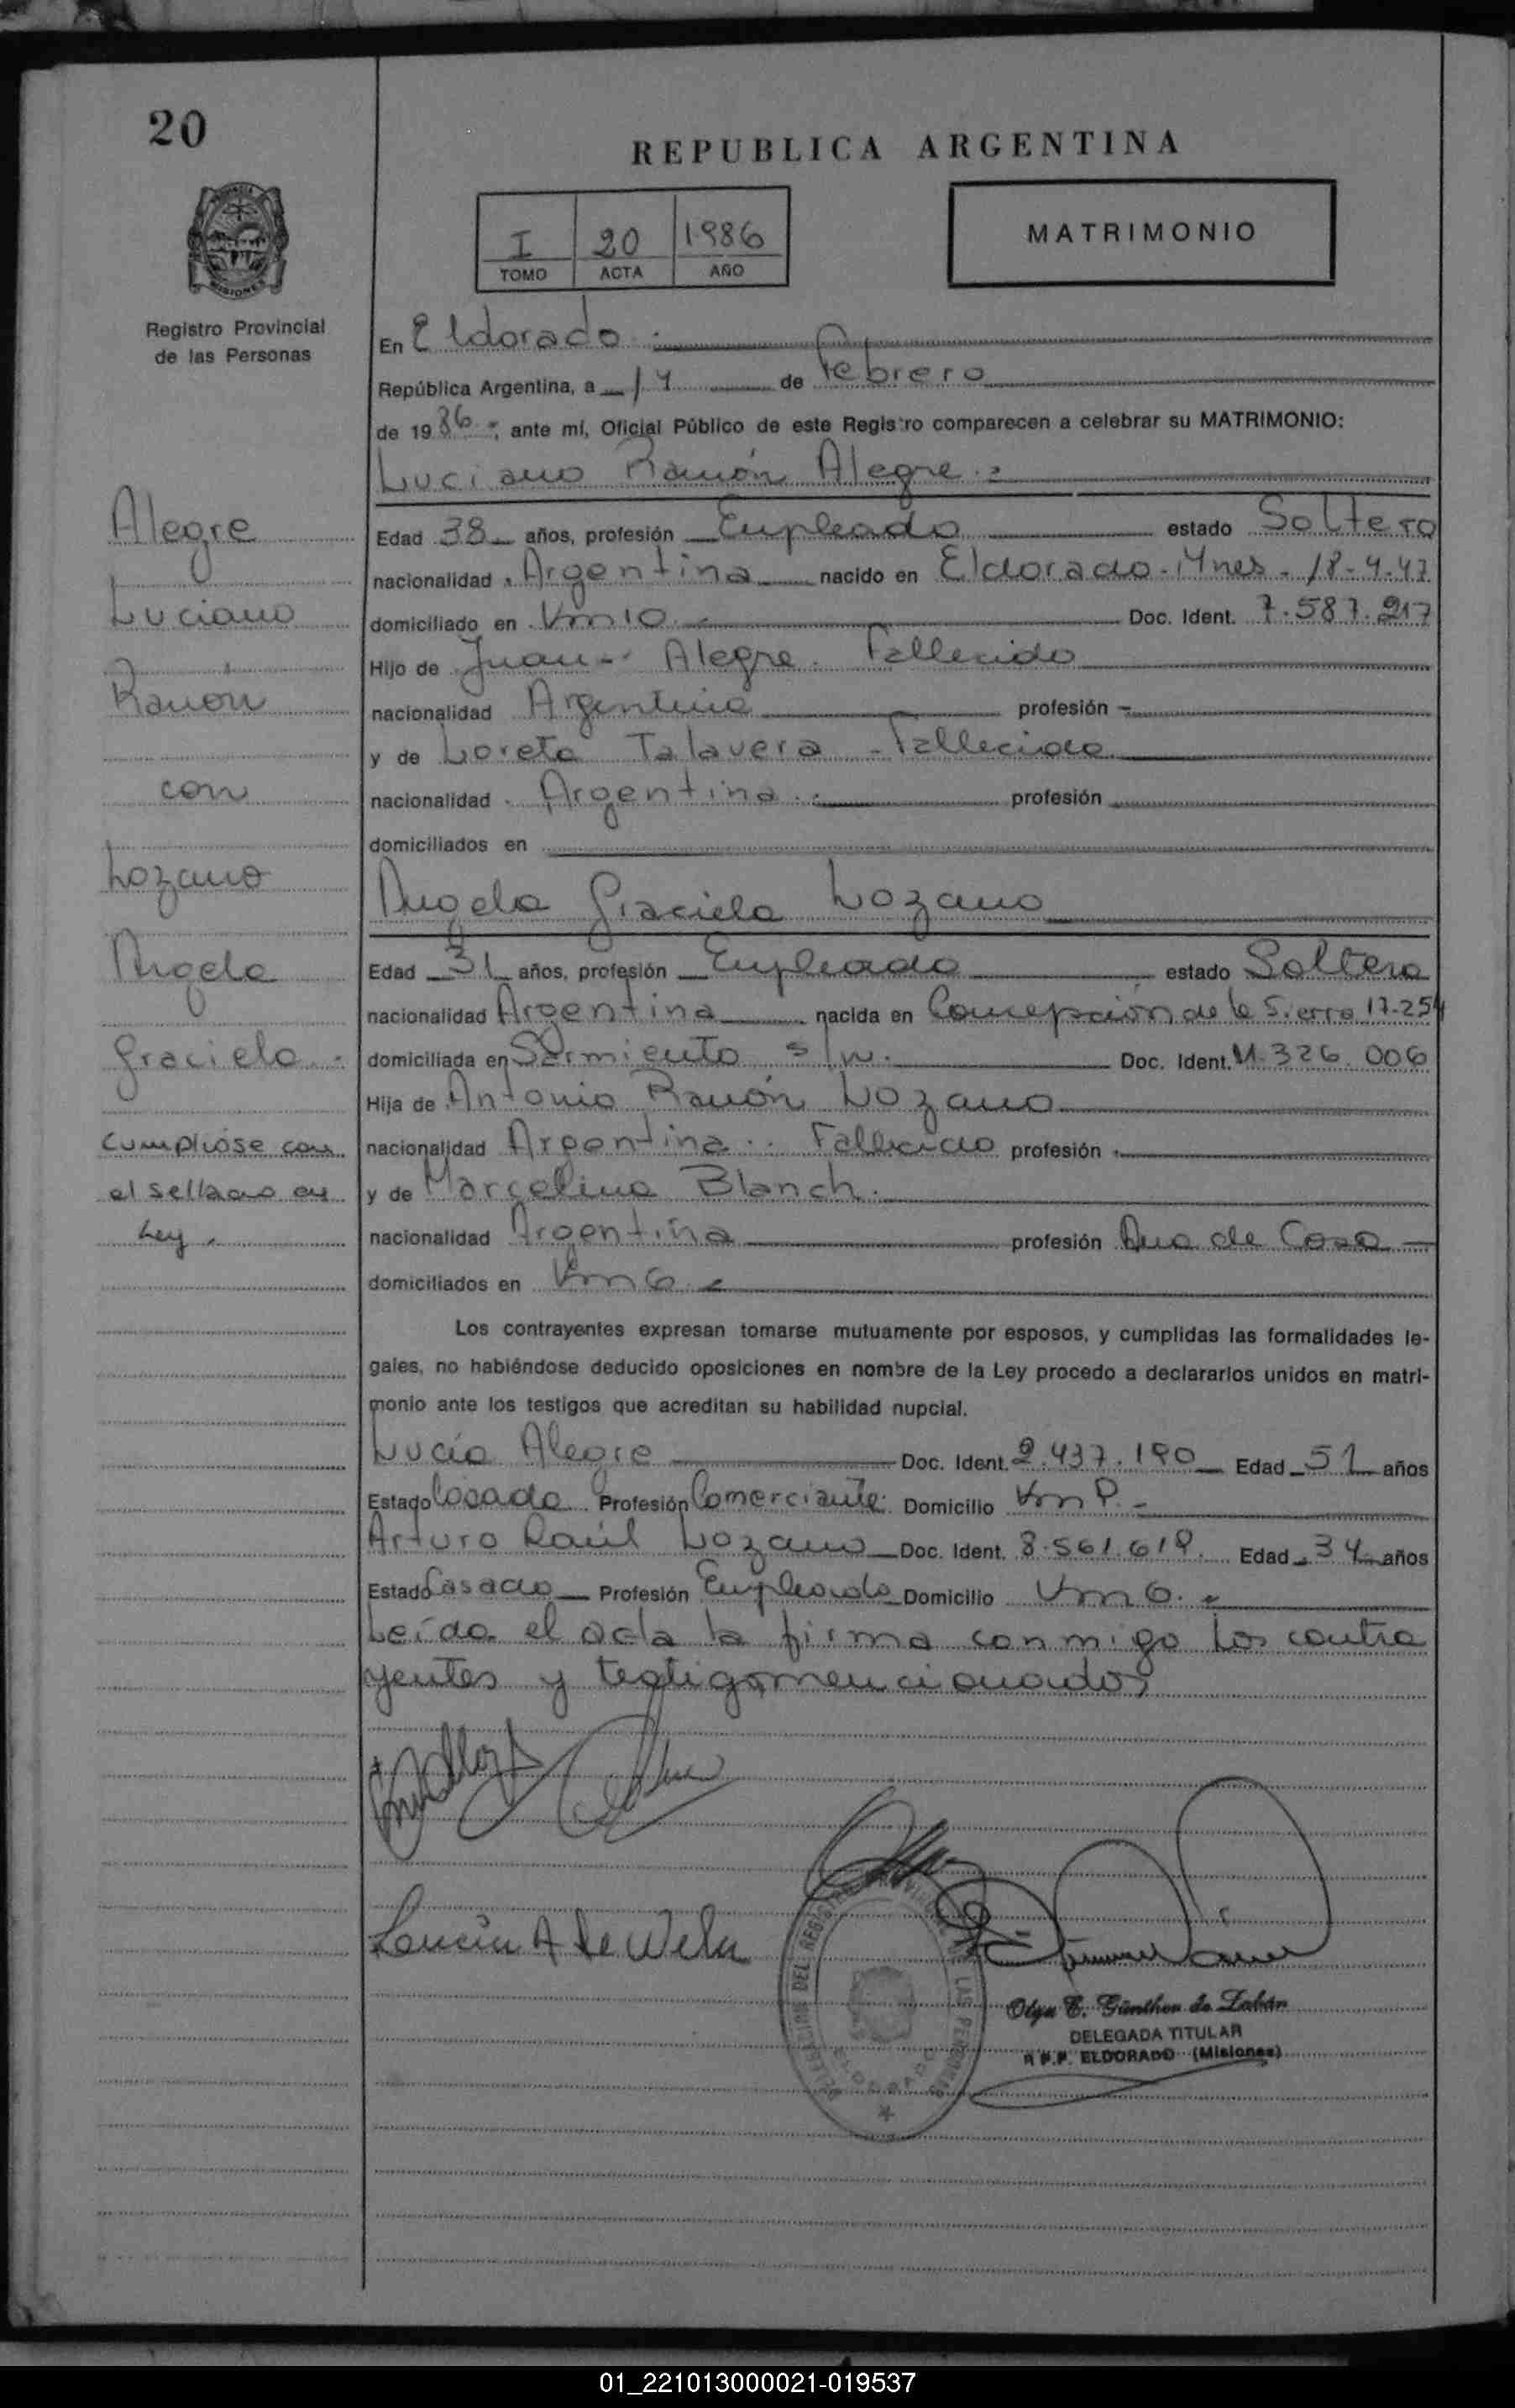 20
REPUBLICA ARGENTINA
I 20 1986
TOMO ACTA AÑO
MATRIMONIO
Registro Provincial
de las Personas
En Eldorado
República Argentina, a 14 de Febrero
de 1986, ante mí, Oficial Público de este Registro comparecen a celebrar su MATRIMONIO:
Luciano Ramón Alegre
Edad 38 años, profesión Empleado estado Soltero
nacionalidad Argentina nacido en Eldorado - Mnes - 18-4-47
domiciliado en Km 10 Doc. Ident. 7.587.217
Hijo de Juan Alegre. Fallecido
nacionalidad Argentina profesión -
y de Loreta Talavera - Fallecida
nacionalidad Argentina profesión
domiciliados en
Angela Graciela Lozano
Edad 31 años, profesión Empleada estado Soltera
nacionalidad Argentina nacida en Concepción de la Sierra 17-2-54
domiciliada en Sarmiento s/n. Doc. Ident. 11.326.006
Hija de Antonio Ramón Lozano
nacionalidad Argentina Fallecido profesión
y de Marcelina Blanch
nacionalidad Argentina profesión Ama de Casa
domiciliados en Km 6
Los contrayentes expresan tomarse mutuamente por esposos, y cumplidas las formalidades le-
gales, no habiéndose deducido oposiciones en nombre de la Ley procedo a declararlos unidos en matri-
monio ante los testigos que acreditan su habilidad nupcial.
Lucía Alegre Doc. Ident. 2.437.190 Edad 51 años
Estado Casada Profesión Comerciante Domicilio Km 9
Arturo Raúl Lozano Doc. Ident. 8.561.619 Edad 34 años
Estado Casado Profesión Empleado Domicilio Km 6
Leída el acta la firma conmigo los contra
yentes y testigos mencionados
Alegre
Luciano
Ramón
con
Lozano
Angela
Graciela
Cumplióse con
el sellado en
Ley.
DELEGACION DEL REGISTRO PROVINCIAL DE LAS PERSONAS
ELDORADO
Olga E. Günther de Labán
DELEGADA TITULAR
R.P.P. ELDORADO (Misiones)
01_221013000021-019537